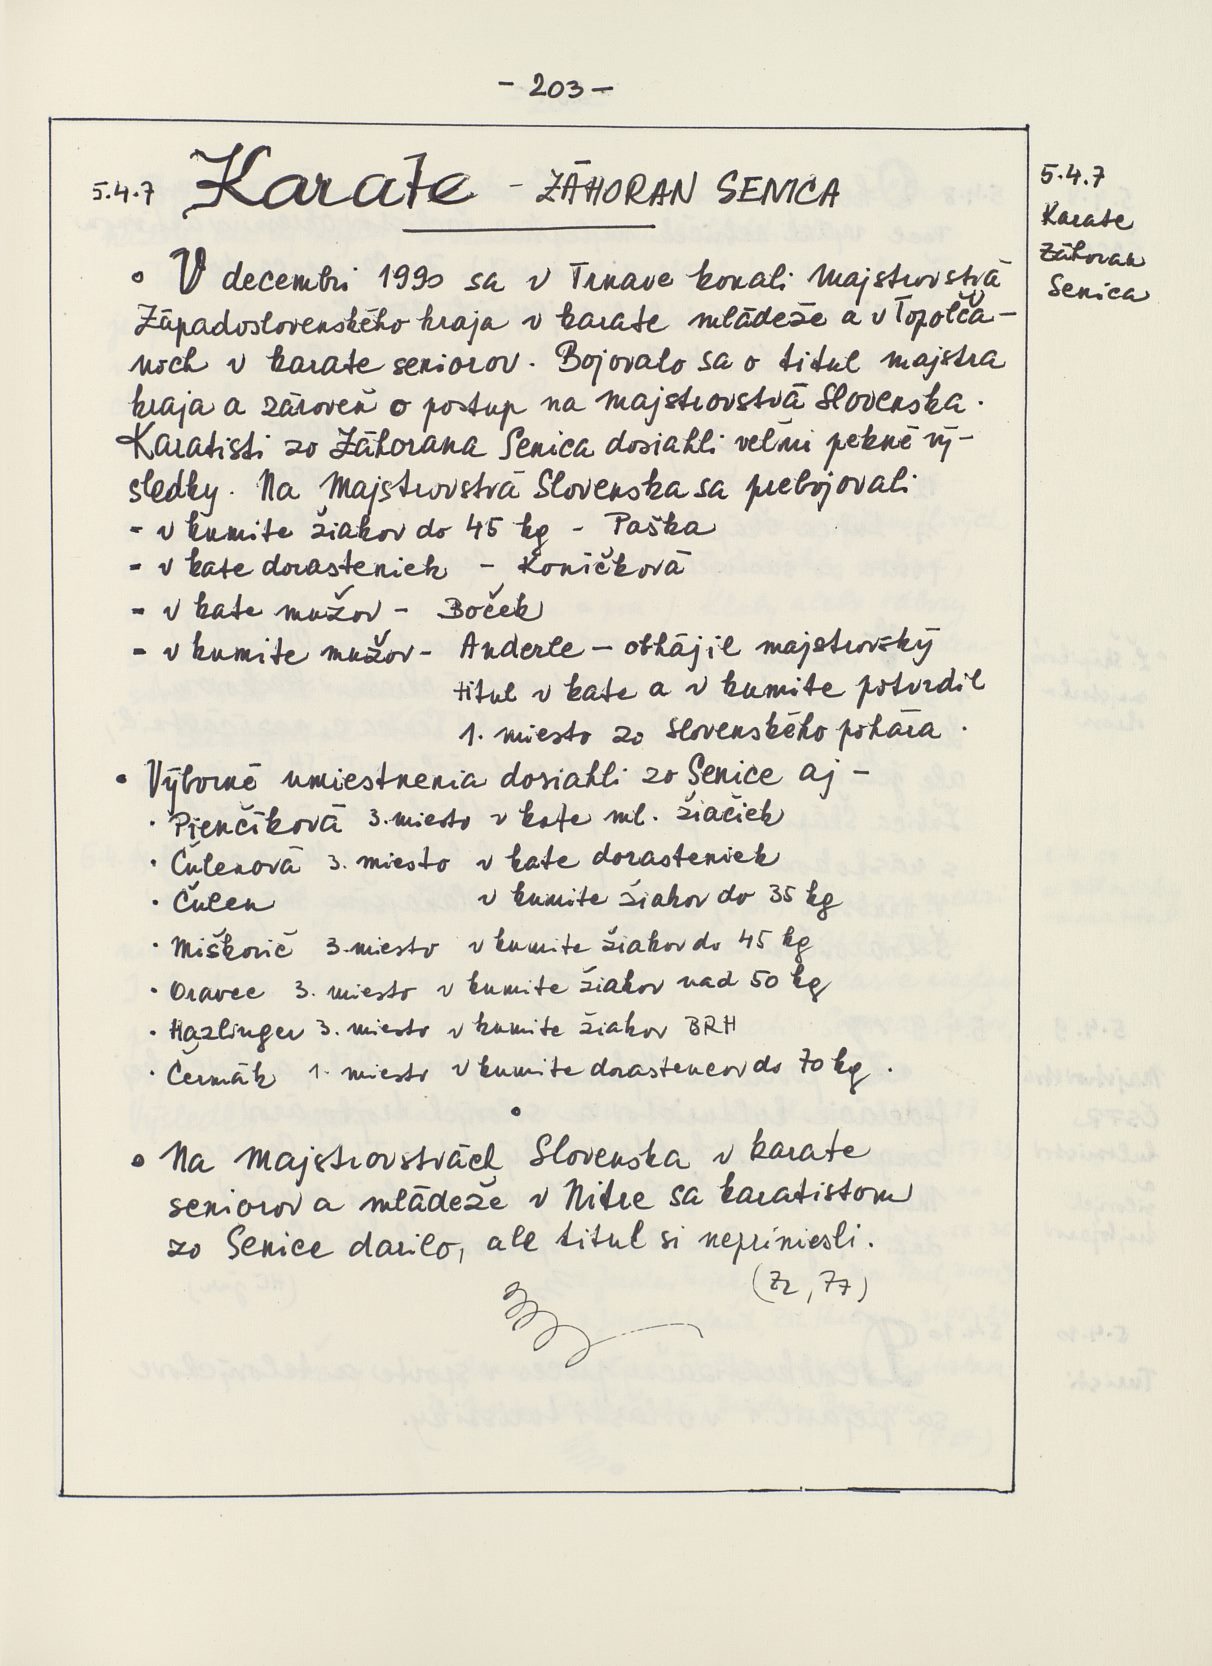 - 203 -
5.4.7 Karate - ZÁHORAN SENICA
5.4.7
Karate
Záhoran
Senica
• V decembri 1990 sa v Trnave konali Majstrovstvá
Západoslovenského kraja v karate mládeže a v Topolča-
noch v karate seniorov. Bojovalo sa o titul majstra
kraja a zároveň o postup na majstrovstvá Slovenska.
Karatisti zo Záhorana Senica dosiahli veľmi pekné vý-
sledky. Na Majstrovstvá Slovenska sa prebojovali
- v kumite žiakov do 45 kg - Paška
- v kate dorasteniek - Koníčková
- v kate mužov - Boček
- v kumite mužov - Anderle - obhájil majstrovský
titul v kate a v kumite potvrdil
1. miesto zo Slovenského pohára.
• Výborné umiestnenia dosiahli zo Senice aj -
· Pjenčíková 3. miesto v kate ml. žiačiek
· Čulenová 3. miesto v kate dorasteniek
· Čulen v kumite žiakov do 35 kg
· Miškovič 3. miesto v kumite žiakov do 45 kg
· Oravec 3. miesto v kumite žiakov nad 50 kg
· Hazlinger 3. miesto v kumite žiakov BRH
· Čermák 1. miesto v kumite dorastencov do 70 kg.
•
• Na Majstrovstvách Slovenska v karate
seniorov a mládeže v Nitre sa karatistom
zo Senice darilo, ale titul si nepriniesli.
(72, 77)